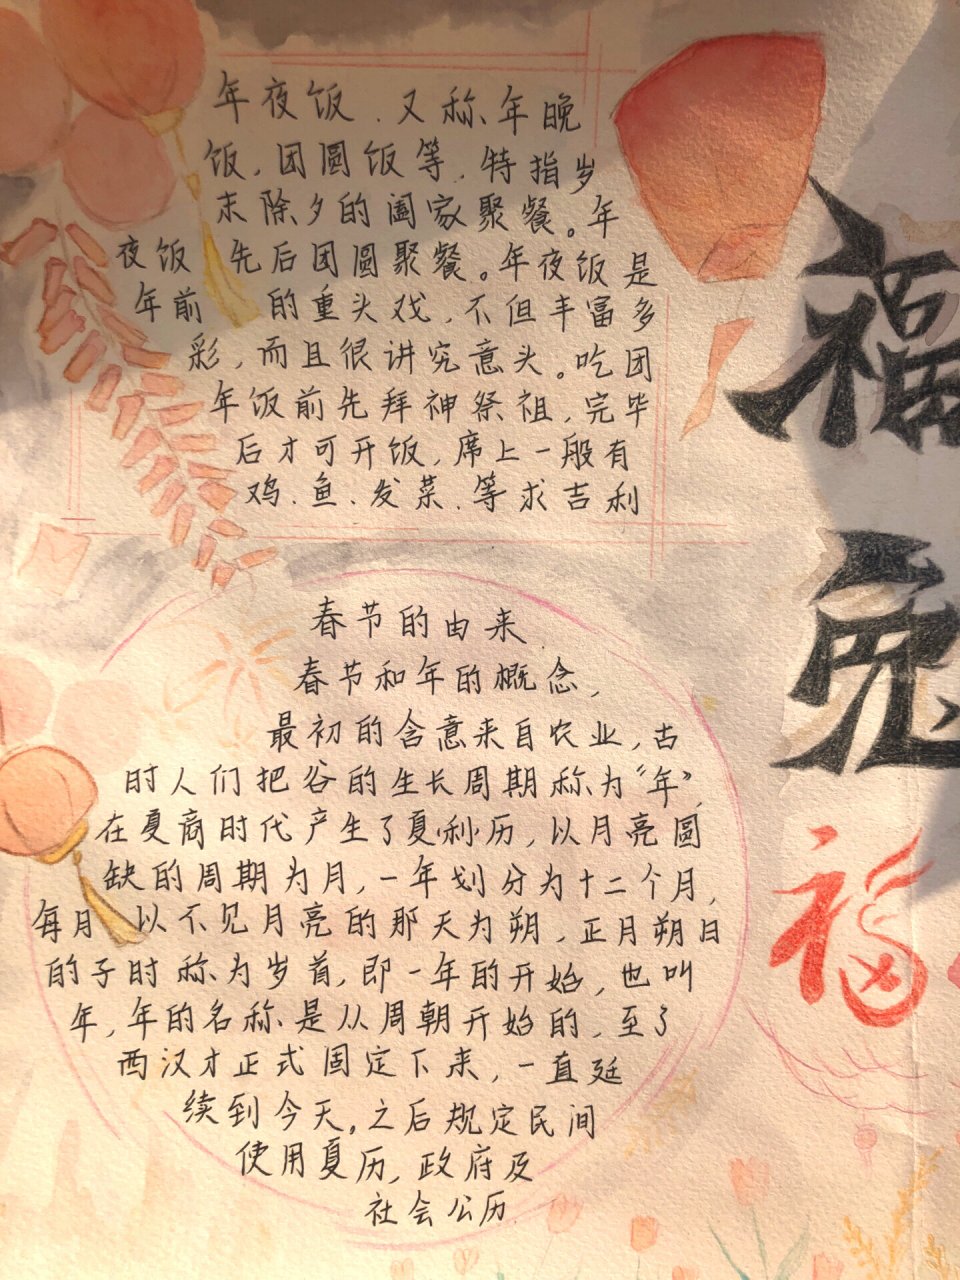 年夜饭、又称年晚
饭,团圆饭等,特指岁
末除夕的阖家聚餐。年
夜饭 先后团圆聚餐。年夜饭是
年前 的重头戏,不但丰富多
彩,而且很讲究意头。吃团
年饭前先拜神祭祖,完毕
后才可开饭,席上一般有
鸡、鱼、发菜、等求吉利
春节的由来
春节和年的概念,
最初的含意来自农业,古
时人们把谷的生长周期称为“年”,
在夏商时代产生了夏利历,以月亮圆
缺的周期为月,一年划分为十二个月,
每月 以不见月亮的那天为朔,正月朔日
的子时称为岁首,即一年的开始,也叫
年,年的名称是从周朝开始的,至了
西汉才正式固定下来,一直延
续到今天。之后规定民间
使用夏历,政府及
社会公历
福
兔
福